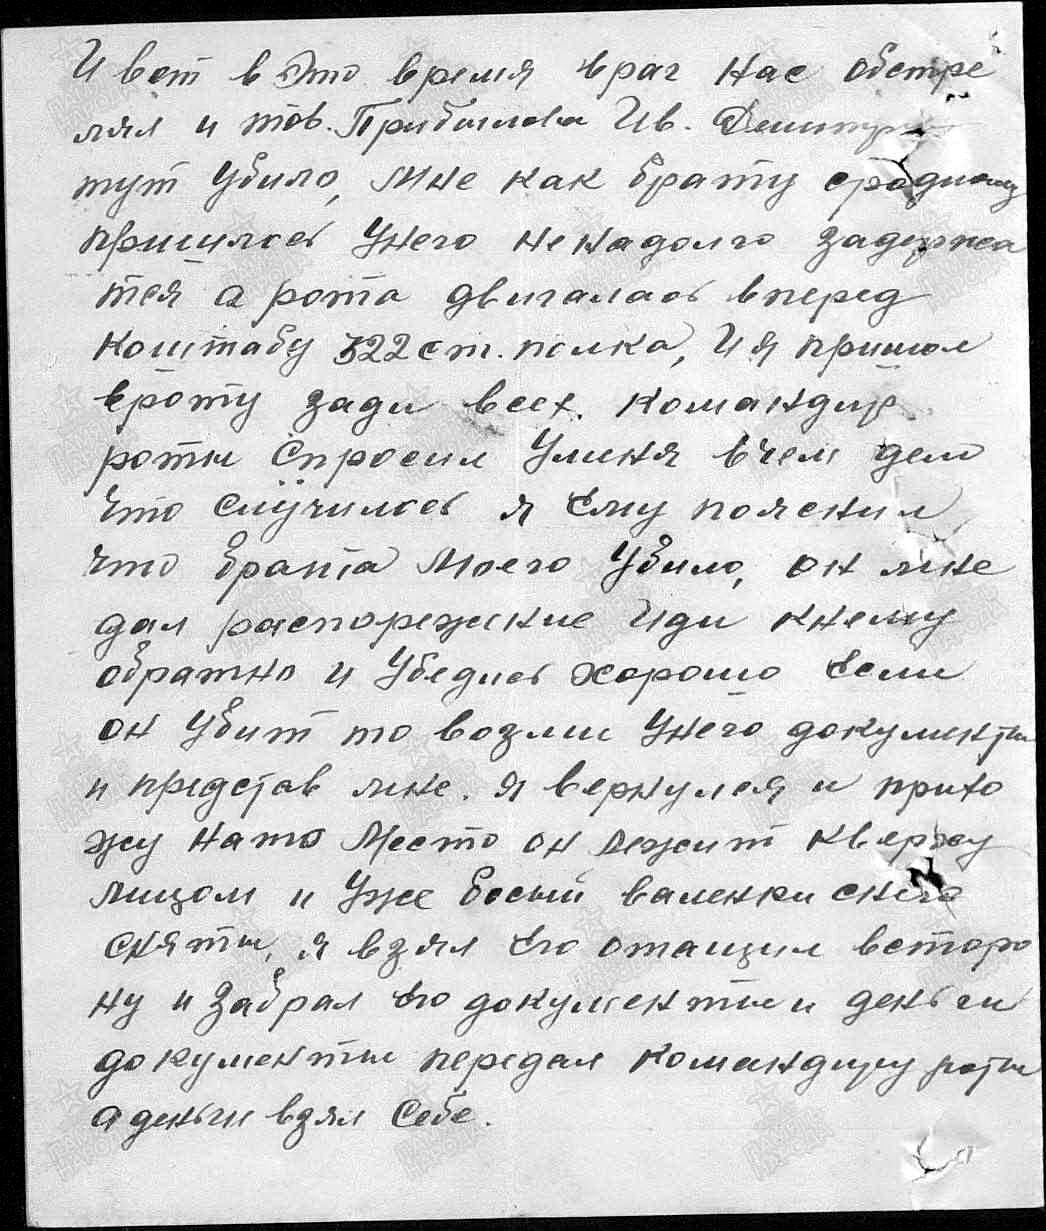 И вот в это время враг нас обстре
лял и тов. Прибылова Ив. Дмитр
тут убило, мне как брату сродному
пришлось унего ненадолго задержа
тся а рота двигалась вперед
коштабу 322 ст. полка, И я пришол
вроту зади всех. командир
роты Спросил Уменя вчем дело
что случилось я Ему пояснил,
что брата Моего Убило, он мне
дал распорежение Иди кнему
обратно и Убедись хорошо Если
он Убит то возми Унего документы
и представ мне. я вернулся и прихо
жу нато Место он лежит кверху
лицом и Уже босый валенки снего
сняты, я взял Его отащил всторо
ну и Забрал Его документы и деньги
документы передал командиру роты
а деньги взял Себе.